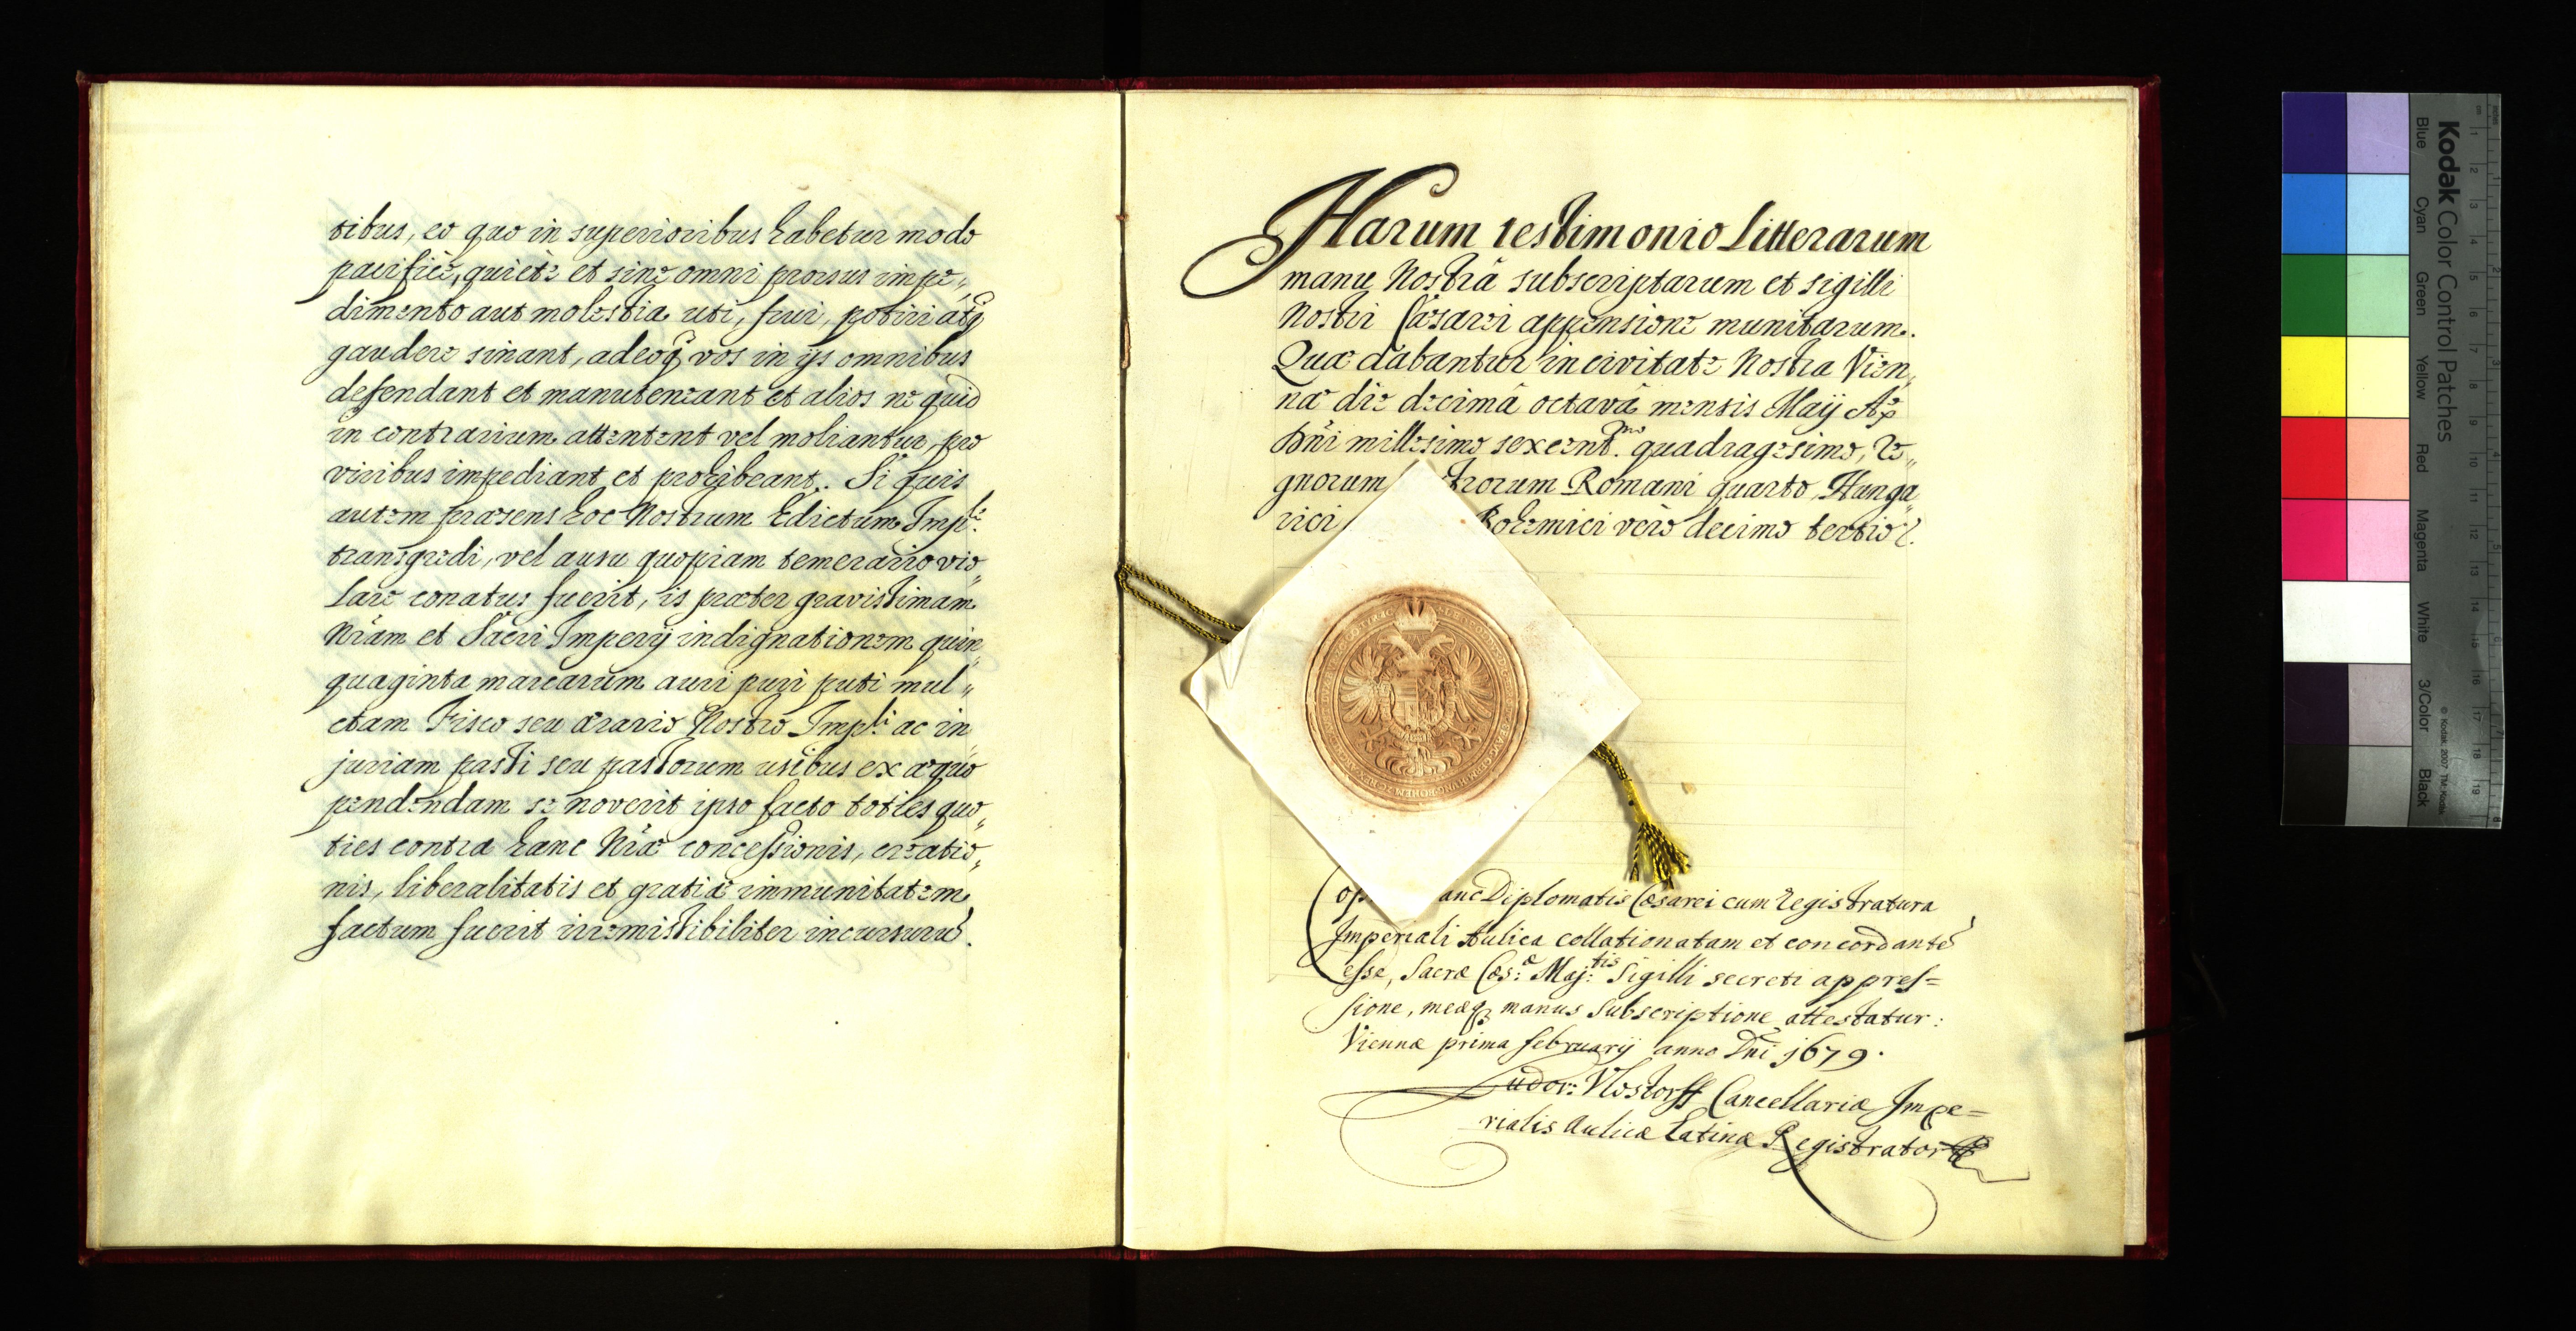 tibus, eo quo in superioribus habetur modo
pacificè, quietè et sine omni prorsus impe„
dimento aut molestia uti, frui, potiri atq
gaudere sinant, adeoq vos in ijs omnibus
defendant et manuteneant et alios ne quid
in contrarium attentent vel moliantur, pro
viribus impediant et prohibeant. Si quis
autem præsens hoc Nostrum Edictum Imp.le
transgredi, vel ausu quopiam temerario vio„
lare conatus fuerit, is præter gravissimam
Nram et Sacri Imperij indignationem quin„
quaginta marcarum auri puri puti mul„
ctam Fisco seu ærario Nostro Imp.li ac in„
juriam passi seu passorum usibus ex æquo
pendendam se noverit ipso facto toties quo„
ties contra hanc Nræ concessionis, creatio„
nis, liberalitatis et gratiæ immunitatem
factum fuerit irremissibiliter incursurū.
Harum testimonio Litterarum
manu Nostrâ subscriptarum et sigilli
Nostri Cæsarei appensione munitarum.
Quæ dabantur in civitate Nostra Vien„
næ die decimâ octavâ mensis Maij Aō
Dn̄i millesimo sexcent.mo quadragesimo, Re„
gnorum trorum Romani quarto, Hunga„
rici Bohemici verò decimo tertio
anc Diplomatis Cæsarei cum Registratura
Imperiali Aulica collationatam et concordantē
esse, Sacræ Cæs:æ Maj:tis Sigilli secreti appres=
sione, meaq3 manus subscriptione attestatur:
Viennæ prima februarij anno Dn̄i 1679.
Cancellariæ Impe=
rialis Aulicæ Latinæ Registrator
Kodak Color Control Patches
Blue Cyan Green Yellow Red Magenta White 3/Color Black
© Kodak, 2007 TM: Kodak